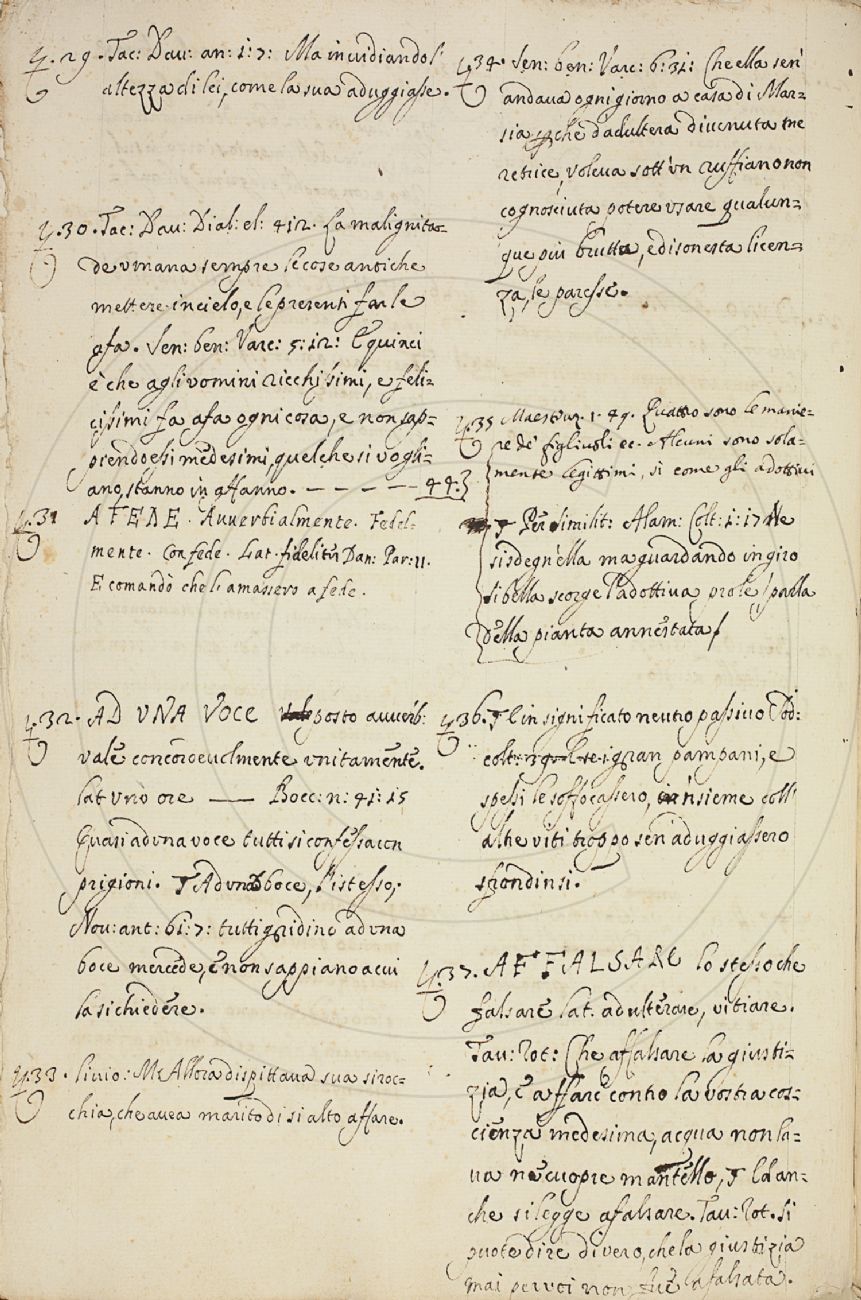 29. Tac: Dav: an: 1: 7: Ma invidiando l'
altezza di lei, come la sua aduggiasse.
30. Tac: Dav: Dial: el: 412. La malignita-
de vmana sempre le cose antiche
mettere in cielo, e le presenti far le
afa. Sen: ben: Varc: 5: 12: E quinci
è che agli vomini ricchissimi, e feli-
cissimi fa afa ogni cosa, e non sap-
piendo essi medesimi, quel che si vogli-
ano, stanno in affanno. — — — — 44.
31 A FEDE. Avverbialmente. Fedel-
mente. Con fede. Lat. fideliter Dan: Par: 11.
E comandò che l'amassero a fede.
32. AD VNA VOCE posto avverb:
vale concordevelmente vnitamente.
lat vno ore — Bocc: n: 41: 15
Quasi ad vna voce tutti si confessavon
prigioni. ¶ Ad vna boce, l'istesso,
Nov: ant: 61: 7: tutti gridino ad vna
boce mercède, e non sappiano a cui
la si chiedère.
33. Livio: M: Allora dispittava sua siroc-
chia, che avea marito di si alto affare.
34. Sen: ben: Varc: 6: 31: Che ella sen'
andava ogni giorno a casa di Mar-
sia che d'adultera divenuta me
retrice, voleva sott' vn ruffiano non
cognosciuto potere vsare qualun-
que più brutta, e disonesta licen-
za, le paresse.
35 Maestruz. 1. 49. Quattro sono le manie-
re de' figliuoli ec. Alcuni sono sola-
mente legittimi, sì come gli adottivi
¶ Per similit: Alam: Colt: 1: 17 Ne
si sdegn' ella ma guardando in giro
si bella scorge l'adottiva prole / parla
della pianta annestata /
36. ¶ E in significato neutro passivo Dav:
colt: i gran pampani, e
spessi le soffocassero, insieme coll'
altre viti troppo sen' aduggiassero
sfrondinsi.
37. AFFALSARE lo stesso che
falsare lat. adulterare, vitiare.
Tav: Rot: Che affalsare la giusti-
zia, è affare contro la vostra cos-
cienza medesima, acqua non la-
va ne cuopre mantello, ¶ Ed an-
che si legge afalsare. Tav: Rot. Si
puote dire di vero, che la giustizia
mai per voi non fue afalsata.